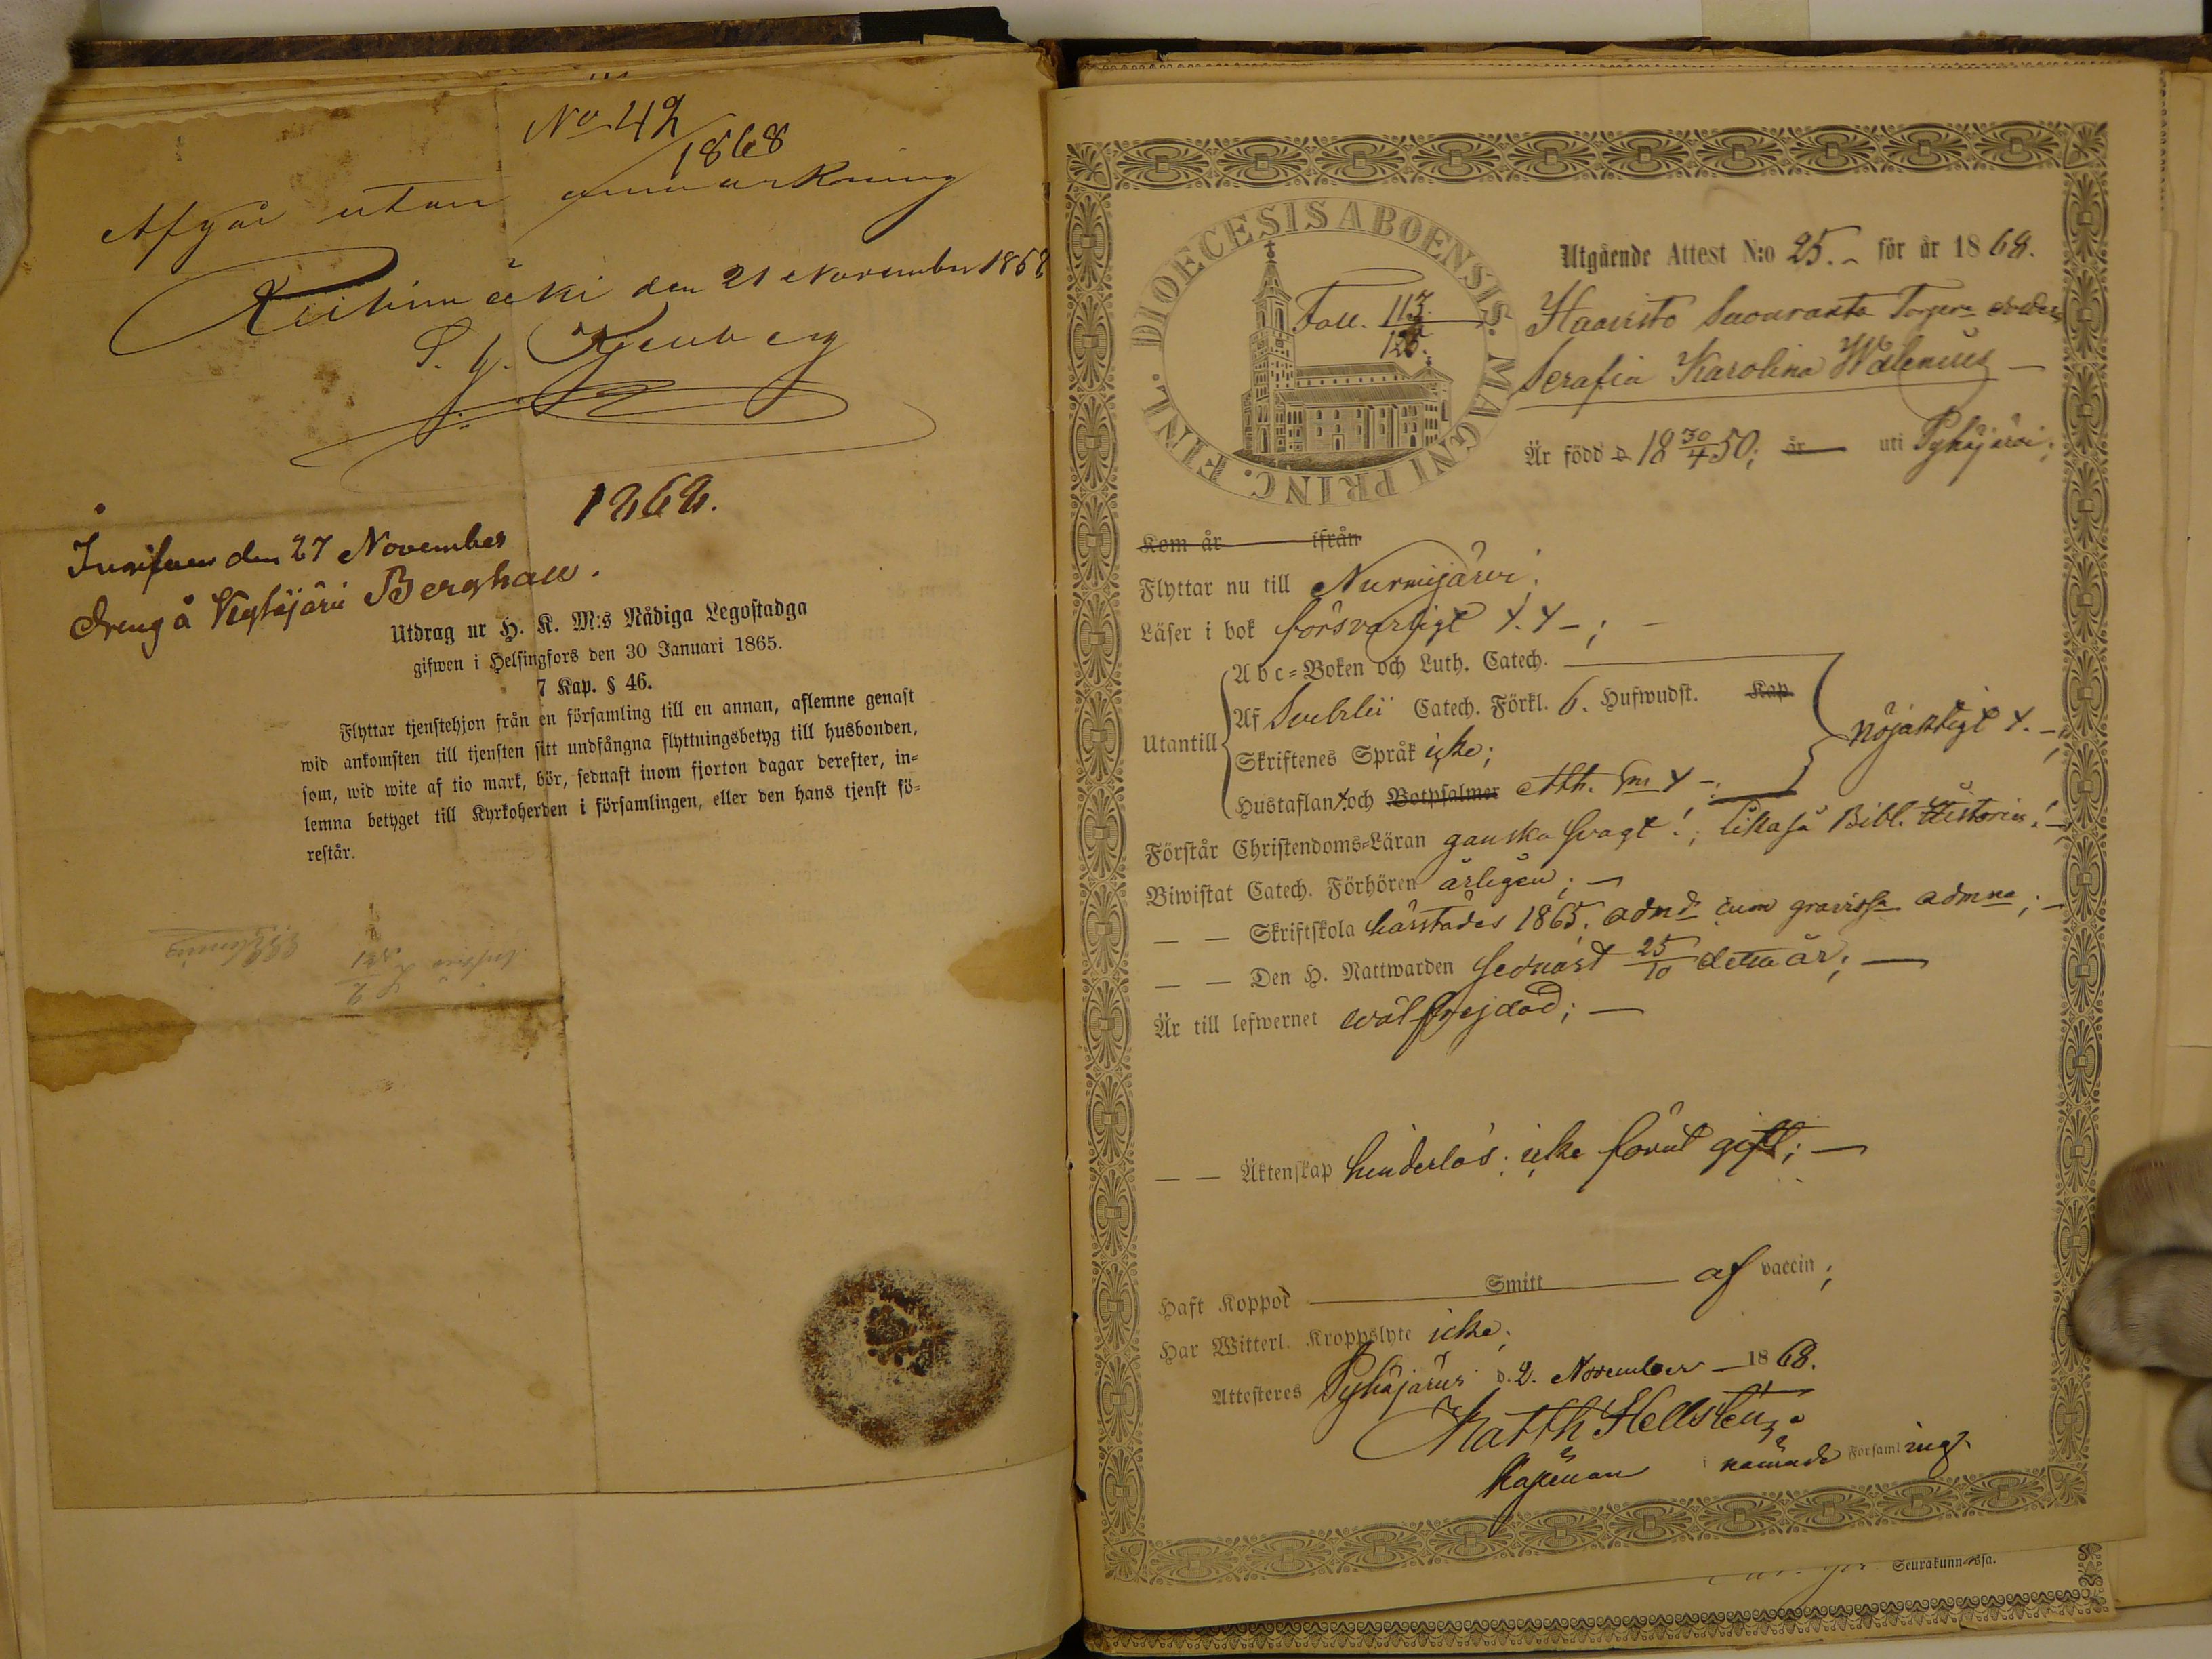 No 42
1868
Afgår utan anmärkning
Riihimäki den 21 November 1868
1868.
den 27 November
dreng å Berghäll.
Utdrag ur H. K. M:s Nådiga Legostadga
gifwen i Helsingfors den 30 Januari 1865.
7 Kap. § 46.
Flyttar tjenstehjon från en församling till en annan, aflemne genast
wid ankomsten till tjensten sitt undfångna flyttningsbetyg till husbonden,
som, wid wite af tio mark, bör, sednast inom fjorton dagar derefter, in-
lemna betyget till Kyrkoherden i församlingen, eller den hans tjenst fö-
restår.
DIOECESIS ABOENSIS. MAGNI PRINC. FINL.
Foll. 113.
125.
Utgående Attest N:o 25. för år 1868.
Haavisto
Serafia Karolina Walenius
Är född d 18 30/4 50; år uti Pyhäjärvi;
Kom år ifrån
Flyttar nu till Nurmijärvi;
Läser i bok försvarligt
Abc-Boken och Luth. Catech.
Utantill Af Svebelii Catech. Förkl. 6. Hufwudst. Kap nöjaktigt
Skriftenes Språk icke;
Hustaflan och Botpsalmer Ath.
Förstår Christendoms-Läran ganska svagt!; likaså Bibl. Historien!
Biwistat Catech. Förhören årligen;
— — Skriftskola härstädes 1865.
— — Den H. Nattwarden sednast 25/10 detta år;
Är till lefwernet wälfrejdad;
— — Äktenskap hinderlös; icke förut gift;
Haft Koppor Smitt af vaccin;
Har Witterl. Kroppslyte icke;
Attesteres Pyhäjärvi d. 2. November 1868.
Matth Hellstén
Kapellan i nämnde Församlings
Seurakunnassa.